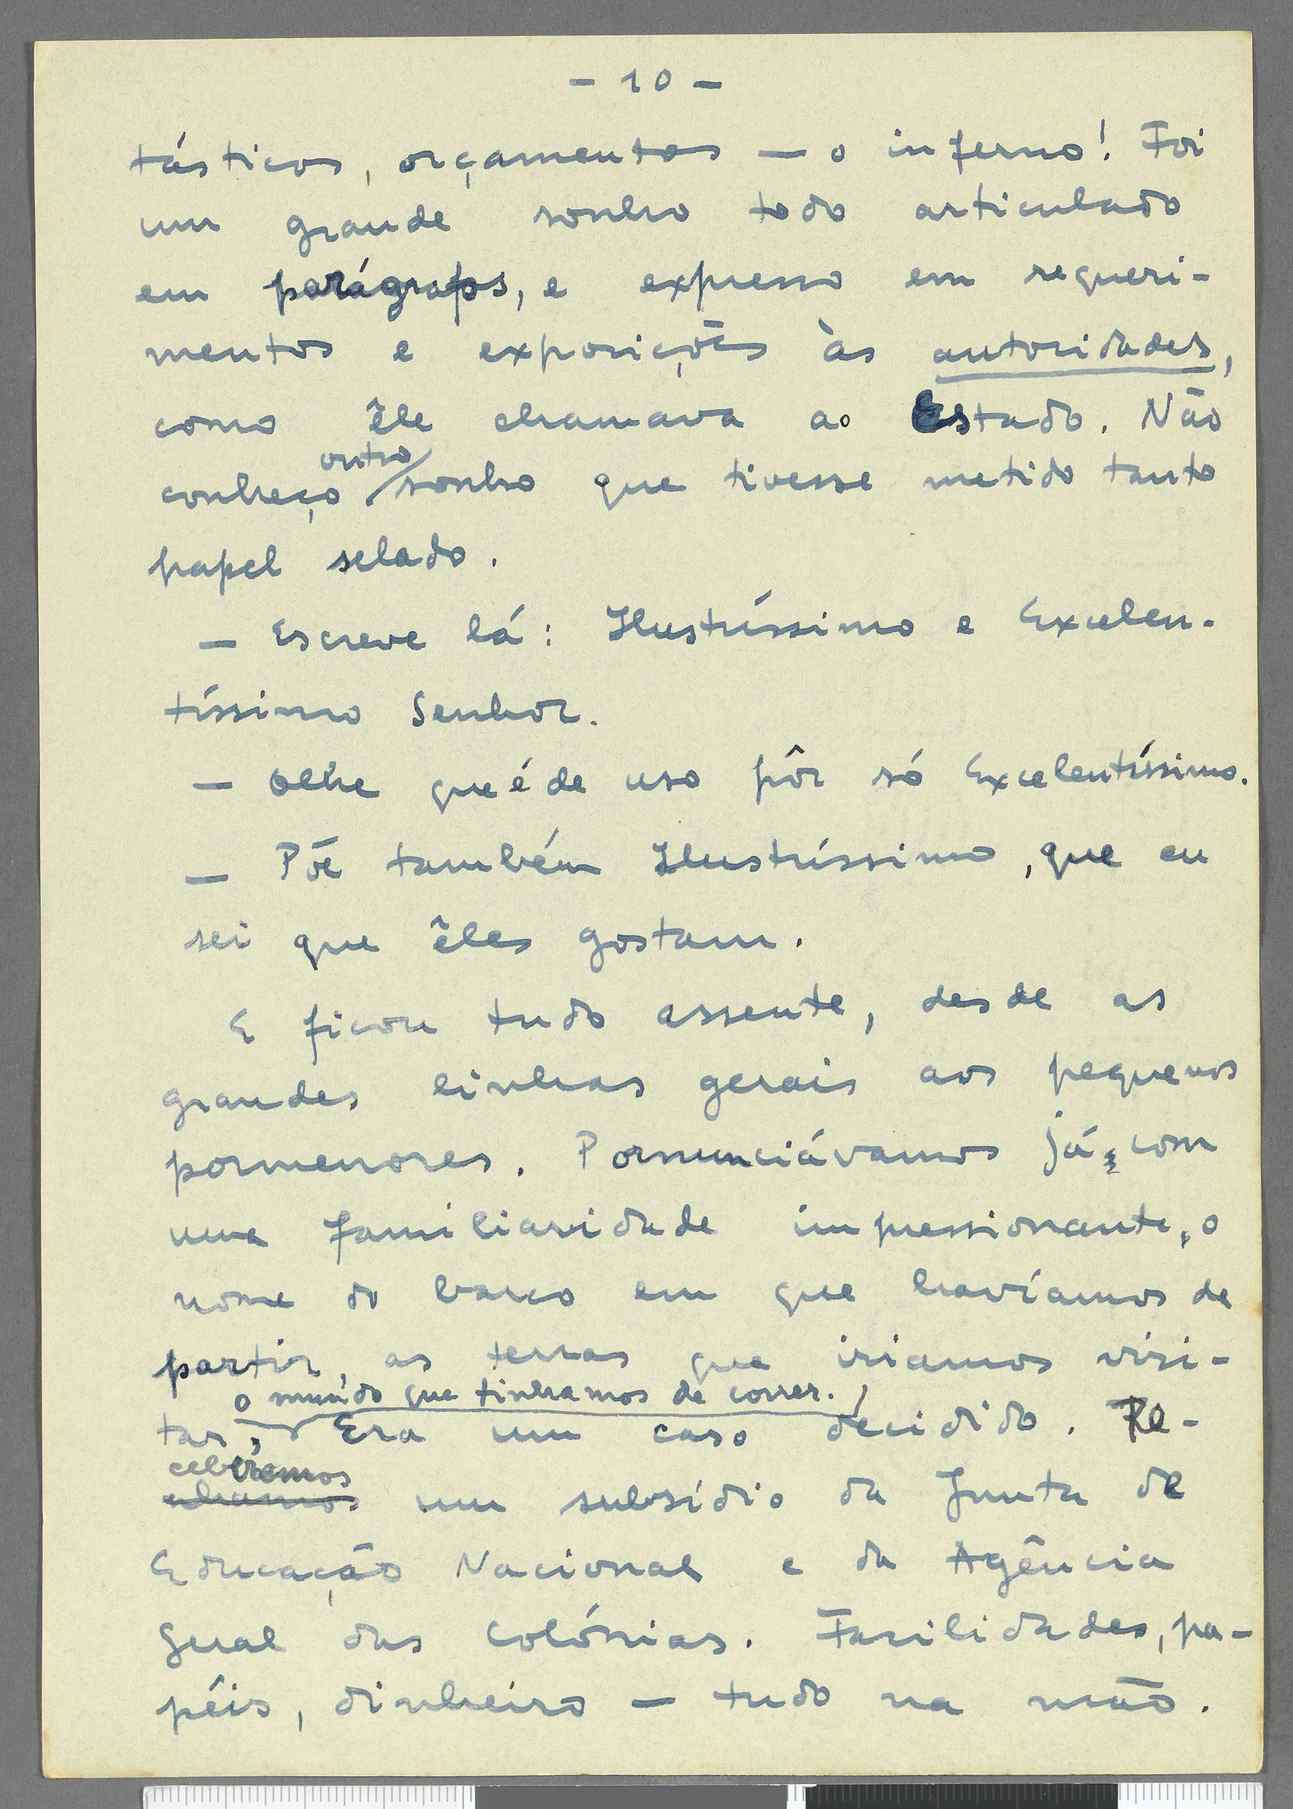 - 10 -
tásticos, orçamentos — o inferno! Foi
um grande sonho todo articulado
em parágrafos, e expresso em requeri-
mentos e exposições às autoridades,
como êle chamava ao Estado. Não
outro
conheço sonho que tivesse metido tanto
papel selado.
— Escreve lá: Ilustríssimo e Excelen-
tíssimo Senhor.
— Olhe que é de uso pôr só Excelentíssimo.
— Põe também Ilustríssimo, que eu
sei que êles gostam.
E ficou tudo assente, desde as
grandes linhas gerais aos pequenos
pormenores. Pornunciávamos já, com
uma familiaridade impressionante, o
nome do barco em que havíamos de
partir, as terras que iriamos visi-
o mundo que tinhamos de correr.
tar, Era um caso decidido. Re-
ceberiamos
um subsídio da Junta de
Educação Nacional e da Agência
geral das Colónias. Facilidades, pa-
péis, dinheiro — tudo na mão.